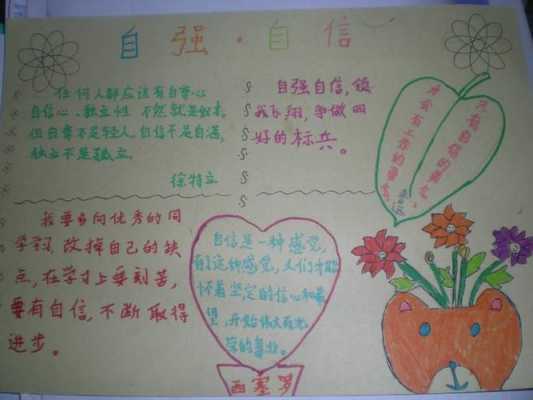 自强·自信
任何人都应该有自尊心
自信心、独立性 不然就是奴才。
但自尊不是轻人,自信不是自满,
独立不是孤立。
徐特立
自强自信,领
我飞翔,争做四
好的标兵。
我要多向优秀的同
学习,改掉自己的缺
点,在学习上要刻苦,
要有自信,不断取得
进步。
自信是一种感觉,
有这种感觉,人们才能
怀着坚定的信心和希
望,开始伟大而光
荣的事业。
西塞罗